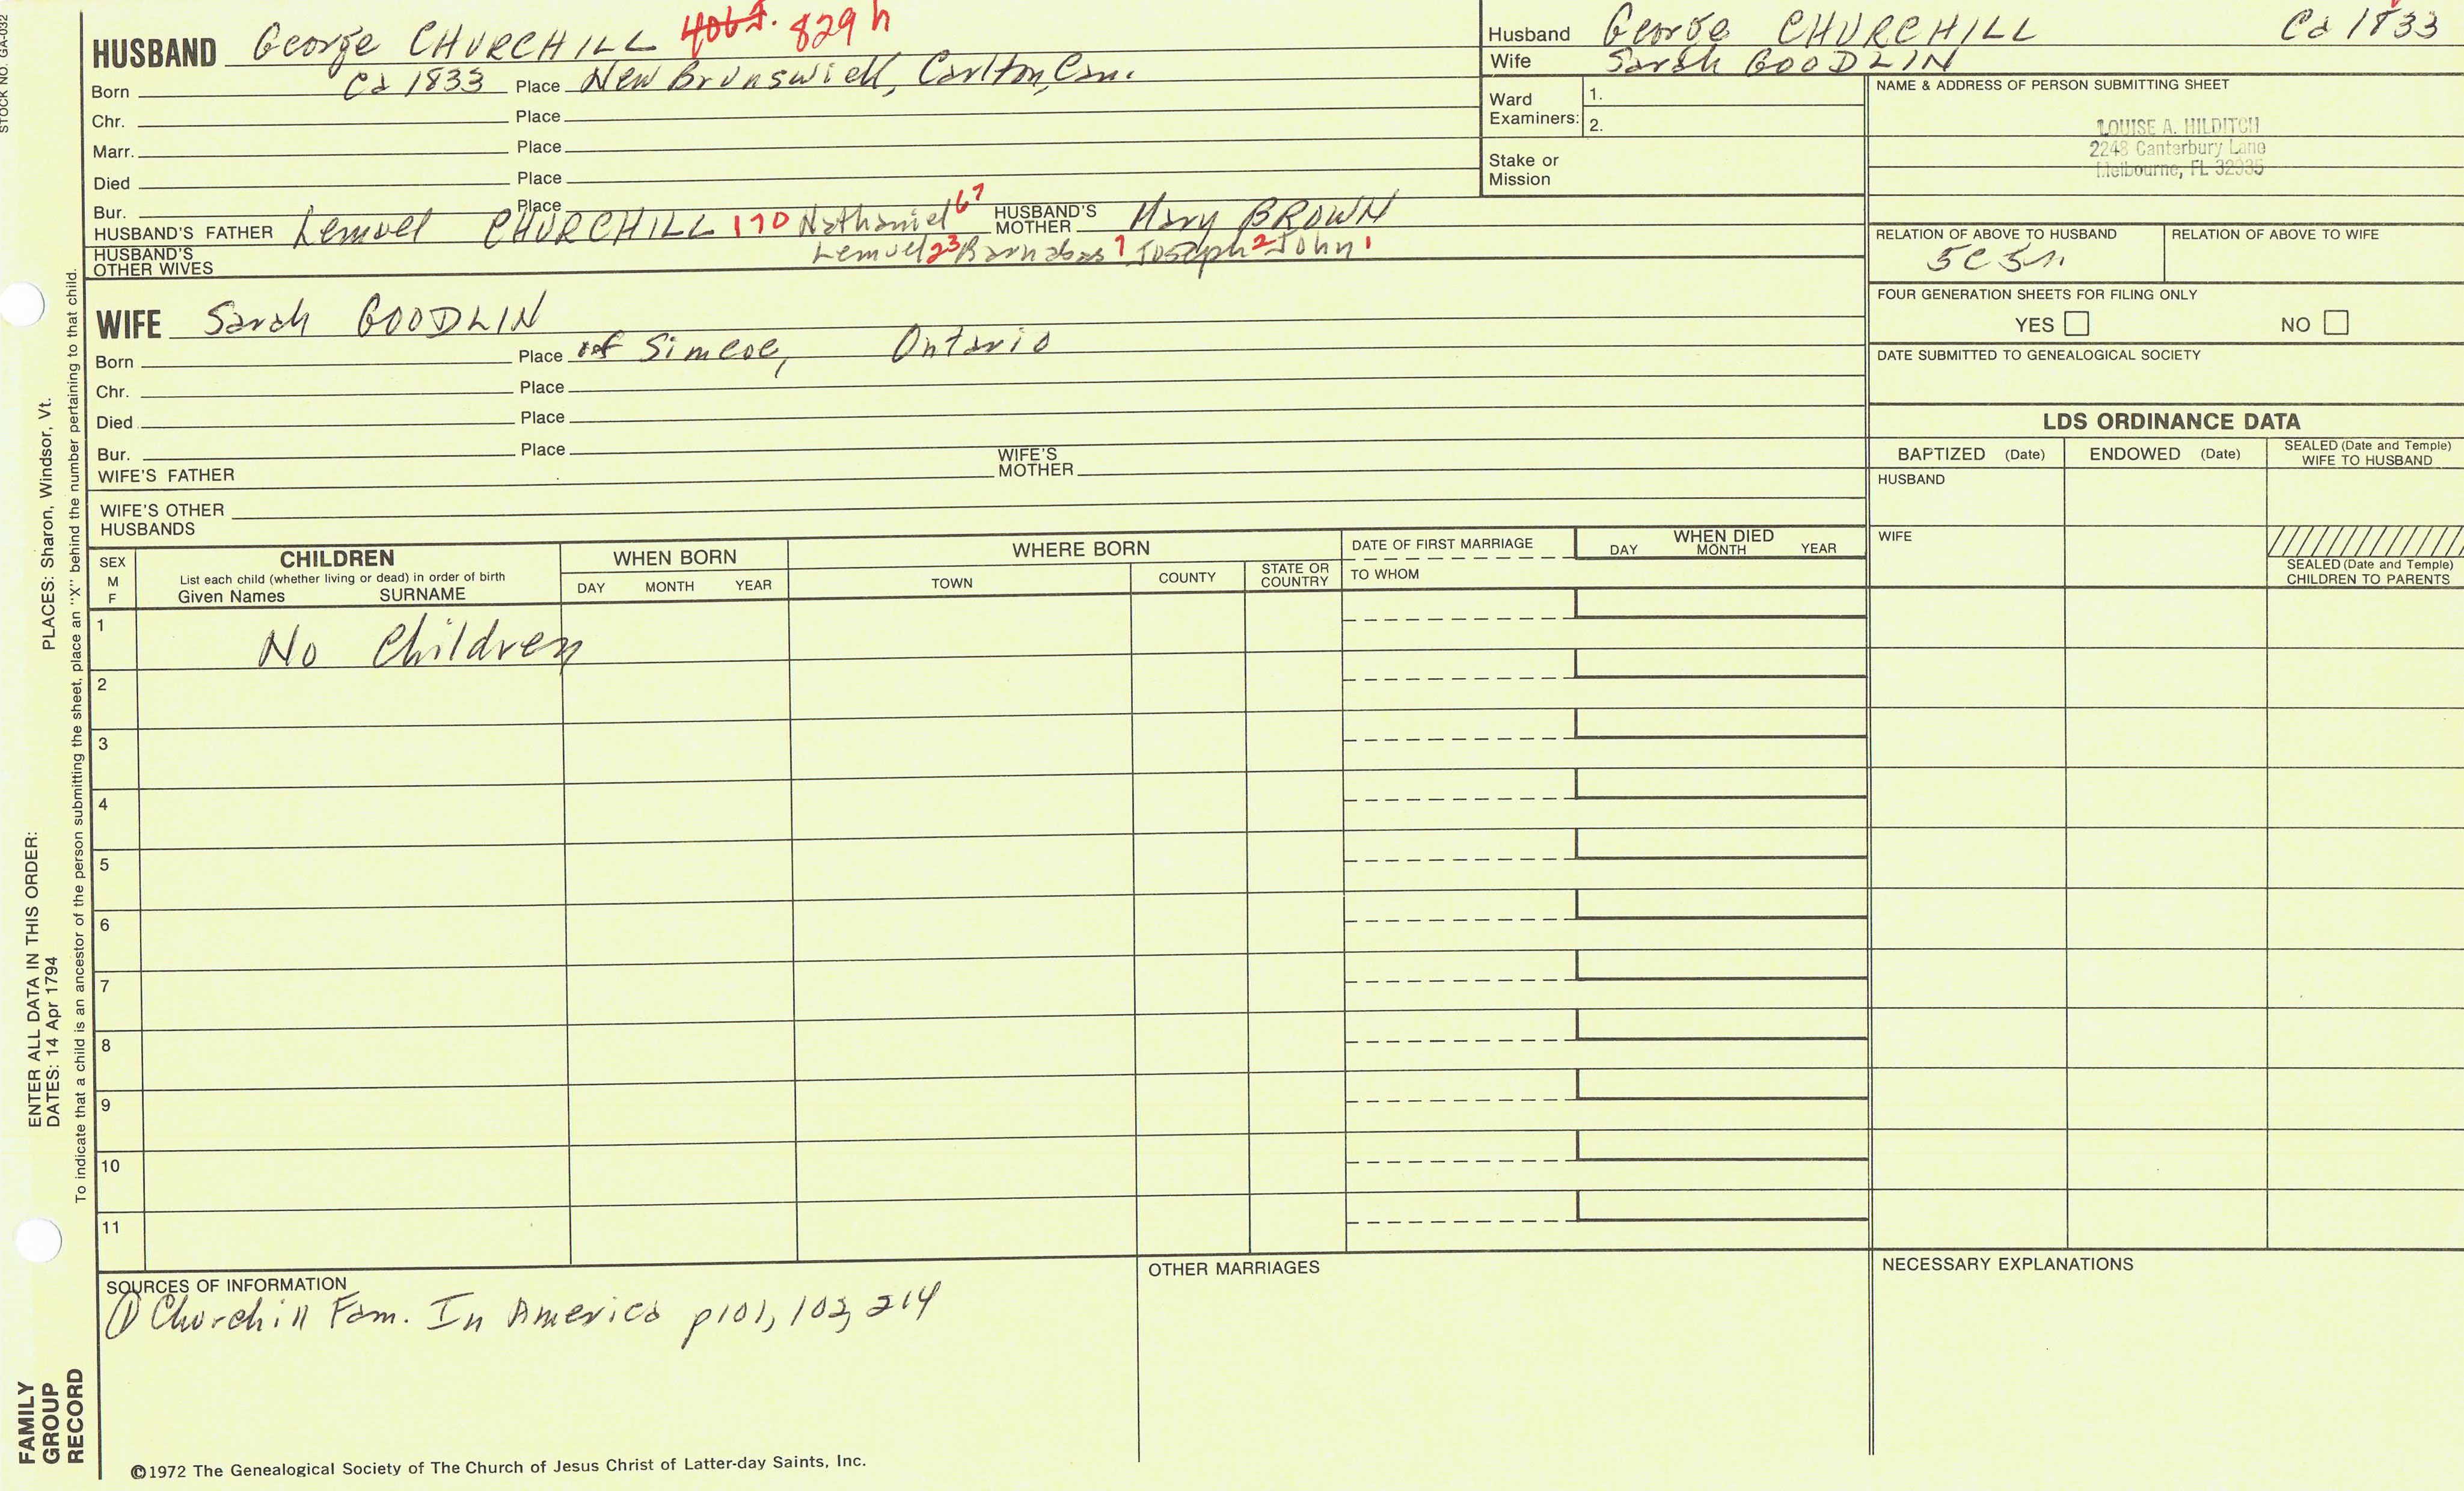 STOCK NO. GA-032
HUSBAND George CHURCHILL 406I. 829 h
Born Ca 1833 Place New Brunswick, Carlton, Can.
Chr. Place
Marr. Place
Died Place
Bur. Place
HUSBAND'S FATHER Lemuel CHURCHILL 170 Nathaniel 67 HUSBAND'S MOTHER Mary BROWN
HUSBAND'S OTHER WIVES Lemuel 23 Barnabas 7 Joseph 2 John 1
WIFE Sarah GOODLIN
Born Place of Simcoe, Ontario
Chr. Place
Died Place
Bur. Place
WIFE'S FATHER WIFE'S MOTHER
WIFE'S OTHER HUSBANDS
Husband George CHURCHILL Ca 1833
Wife Sarah GOODLIN
Ward Examiners: 1.
2.
Stake or Mission
NAME & ADDRESS OF PERSON SUBMITTING SHEET
LOUISE A. HILDITCH
2248 Canterbury Lane
Melbourne, FL 32935
RELATION OF ABOVE TO HUSBAND RELATION OF ABOVE TO WIFE
5C 5r.
FOUR GENERATION SHEETS FOR FILING ONLY
YES NO
DATE SUBMITTED TO GENEALOGICAL SOCIETY
LDS ORDINANCE DATA
BAPTIZED (Date) ENDOWED (Date) SEALED (Date and Temple) WIFE TO HUSBAND
HUSBAND
WIFE
SEALED (Date and Temple) CHILDREN TO PARENTS
SEX M F
CHILDREN
List each child (whether living or dead) in order of birth
Given Names SURNAME
WHEN BORN
DAY MONTH YEAR
WHERE BORN
TOWN COUNTY STATE OR COUNTRY
DATE OF FIRST MARRIAGE
TO WHOM
WHEN DIED
DAY MONTH YEAR
1 No Children
2
3
4
5
6
7
8
9
10
11
SOURCES OF INFORMATION
① Churchill Fam. In America p101, 102, 214
OTHER MARRIAGES
NECESSARY EXPLANATIONS
©1972 The Genealogical Society of The Church of Jesus Christ of Latter-day Saints, Inc.
FAMILY GROUP RECORD
ENTER ALL DATA IN THIS ORDER:
DATES: 14 Apr 1794 PLACES: Sharon, Windsor, Vt.
To indicate that a child is an ancestor of the person submitting the sheet, place an "X" behind the number pertaining to that child.